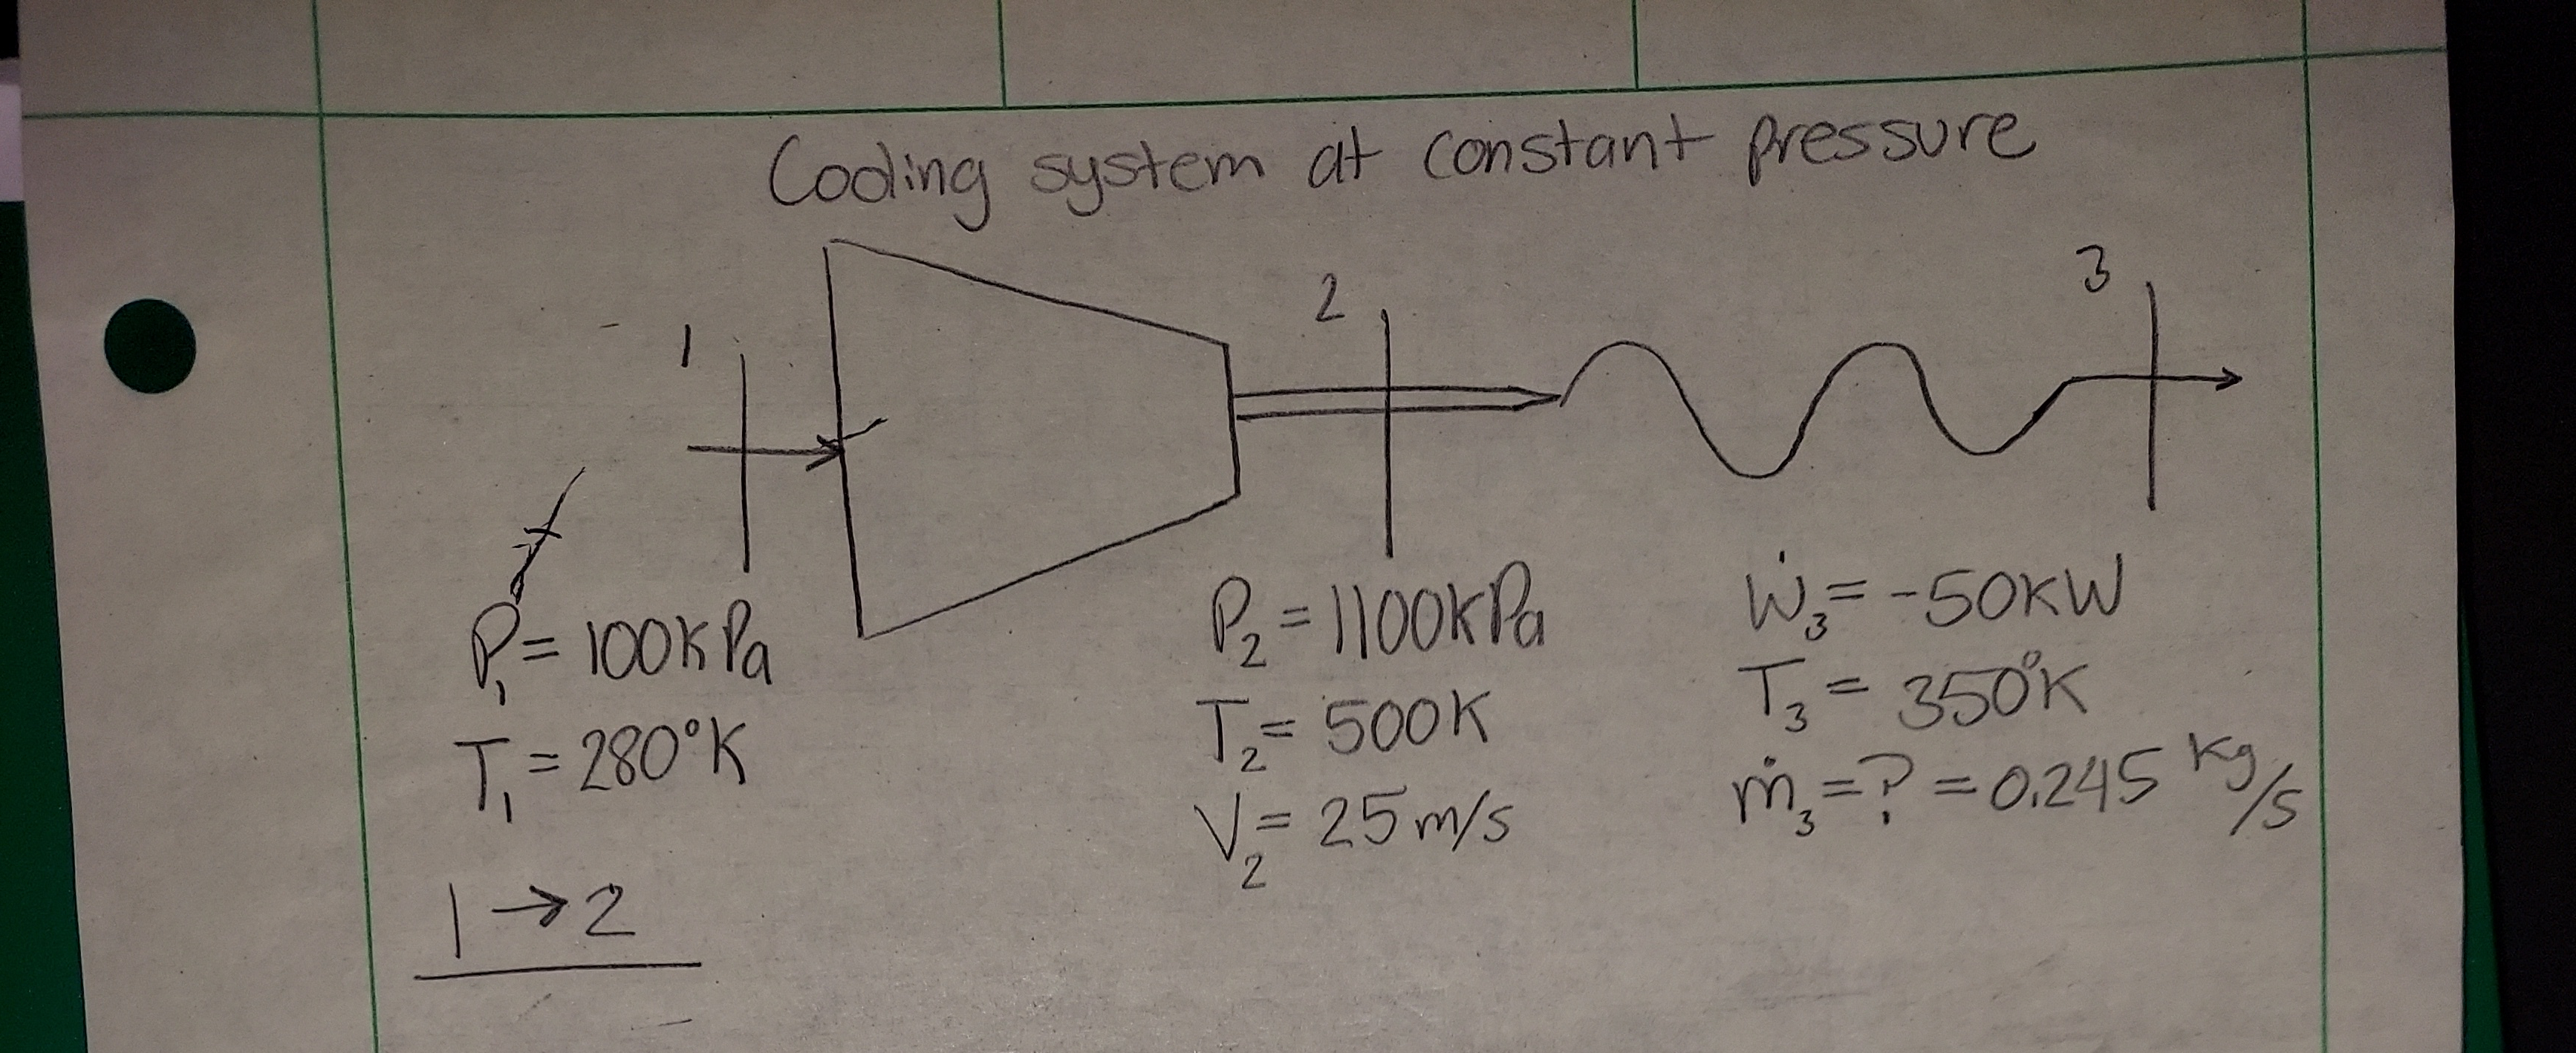 Cooling system at constant pressure
1
2
3
P₁ = 100kPa
T₁ = 280°K
P₂ = 1100kPa
T₂ = 500K
V₂ = 25m/s
Ẇ₃ = -50KW
T₃ = 350°K
ṁ₃ = ? = 0.245 Kg/s
1 → 2